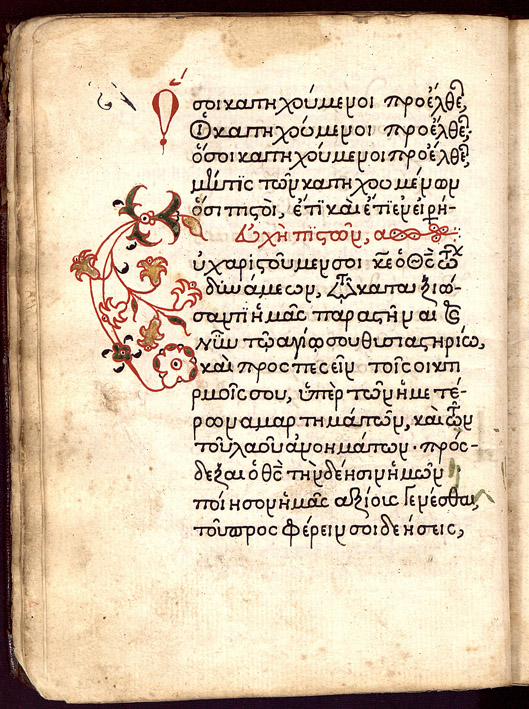 σοι κατηχούμενοι προέλθε,
Οἱ κατηχούμενοι προέλθε·
ὅσοι κατηχούμενοι προέλθε,
μήτις τῶν κατηχουμένων
ὅσι πιστοὶ, ἔτι καὶ ἔτι ἐν εἰρή-
Εὐχὴ πιστῶν, α
ὐχαριστοῦμεν σοι κε ὁ θς τῶν
δυνάμεων, τῷ καταξιώ
σαντι ἡμᾶς παραστῆναι καὶ
νῦν τῷ ἁγίῳ σου θυσιαστηρίῳ,
καὶ προσπεσεῖν τοῖς οἰκτι
ρμοῖς σου, ὑπὲρ τῶν ἡμετέ-
ρων ἁμαρτημάτων, καὶ τῶν
τοῦ λαοῦ ἀγνοημάτων · πρόσ-
δεξαι ὁ θς τὴν δέησιν ἡμῶν
ποίησον ἡμᾶς ἀξίους γενέσθαι,
τοῦ προσφέρειν σοι δεήσεις,